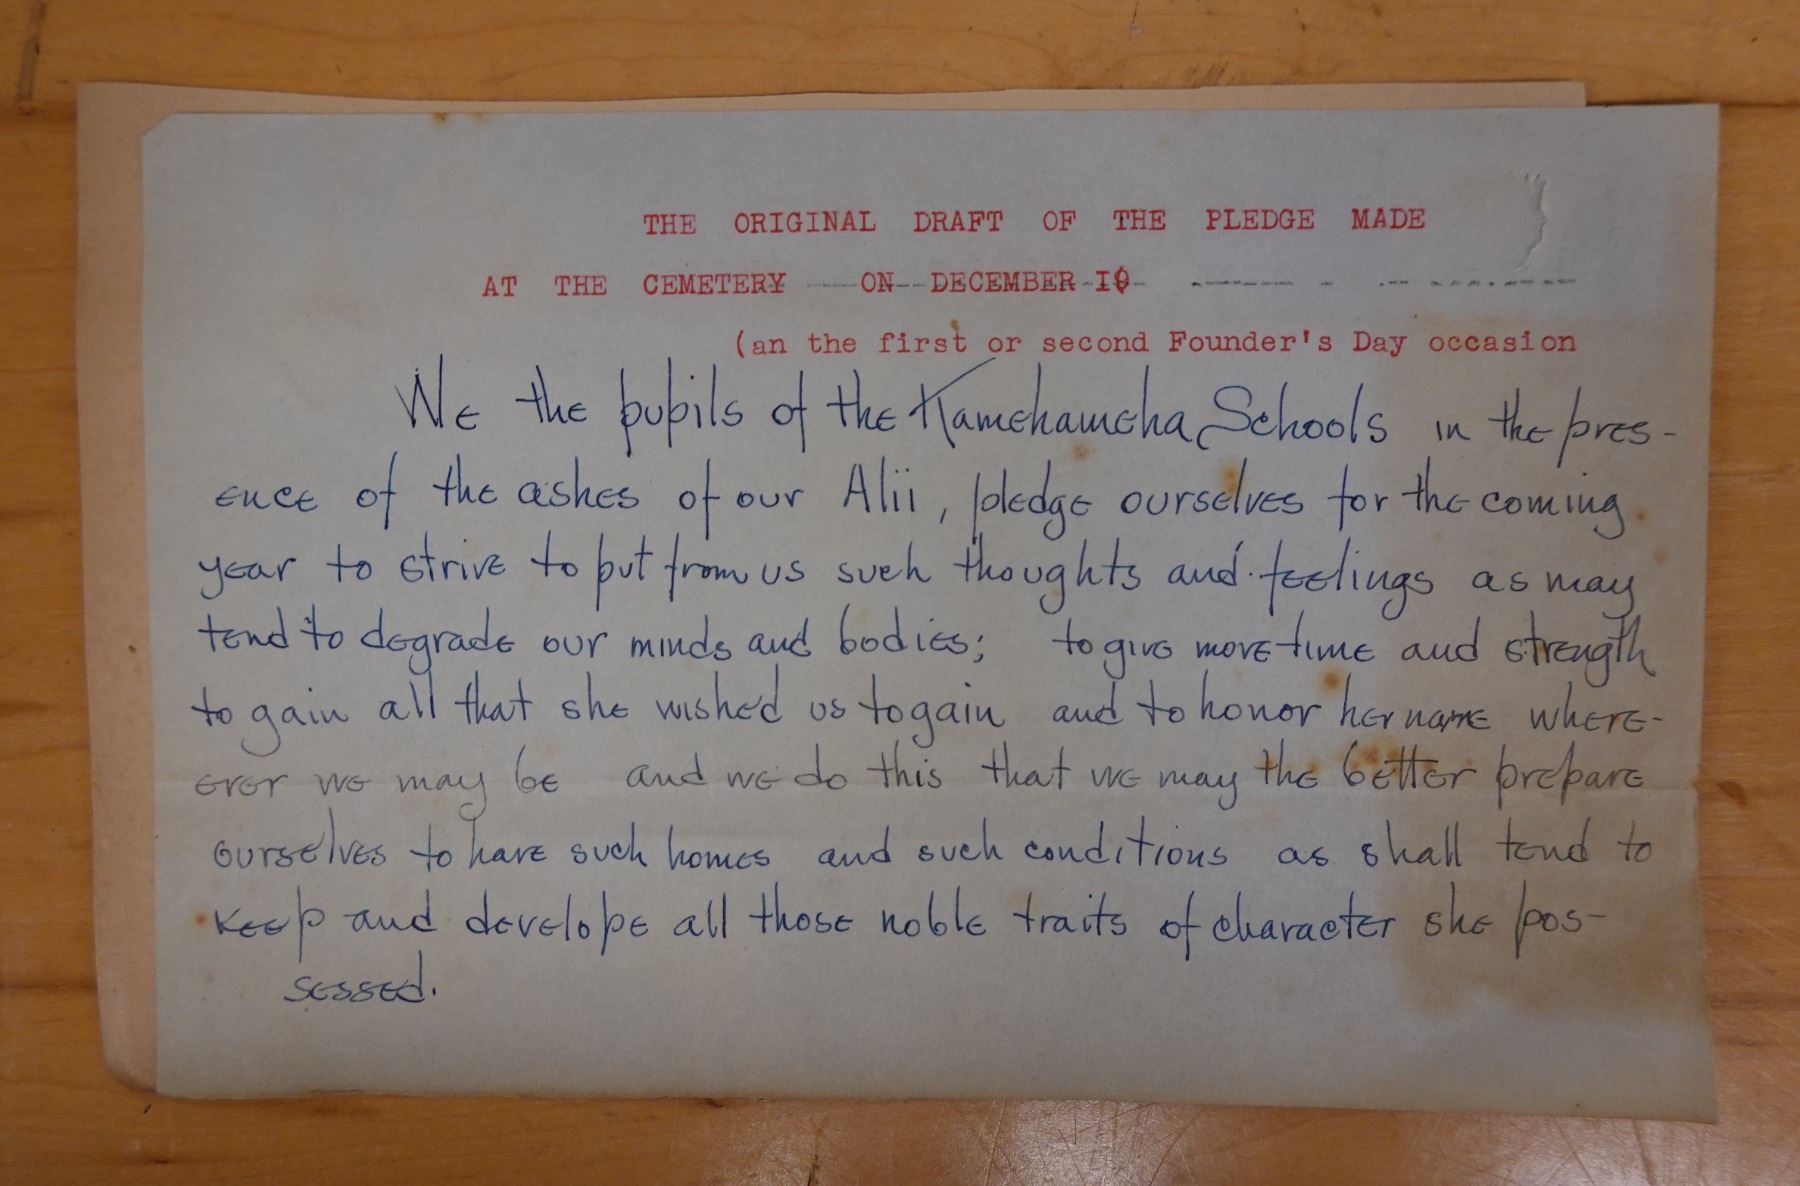 THE ORIGINAL DRAFT OF THE PLEDGE MADE
AT THE CEMETERY ON DECEMBER
(an the first or second Founder's Day occasion
We the pupils of the Kamehameha Schools in the pres-
ence of the ashes of our Alii, pledge ourselves for the coming
year to strive to put from us such thoughts and feelings as may
tend to degrade our minds and bodies; to give more time and strength
to gain all that she wished us to gain and to honor her name where-
ever we may be and we do this that we may the better prepare
ourselves to have such homes and such conditions as shall tend to
keep and develope all those noble traits of character she pos-
sessed.